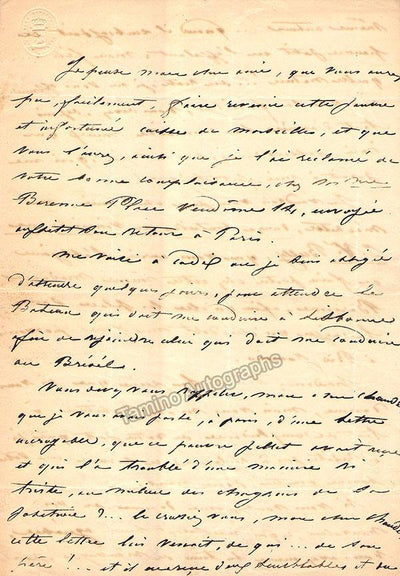 Je pense mon cher ami, que vous aurez
pu, facilement, faire revenir cette pauvre
et infortunée caisse de marseilles, et que
vous l'aurez, ainsi que je l'ai réclamé de
votre bonne complaisance, chez
Baronne Place Vendôme envoyée
aussitôt son retour à Paris.
me voici à Cadix où je suis obligé
d'attendre quelques jours, pour attendre le
Bateau qui doit me conduire à Lisbonne
afin de rejoindre celui qui doit me conduire
au Brésil.
vous devez vous rappeler, mon cher
que je vous ai parlé, à paris, d'une lettre
incroyable, que ce pauvre avait reçue
et qui l'a troublé d'une manière si
triste, au milieu des chagrins de sa
position ?... le croiriez vous, mon cher
cette lettre lui venait, de qui ... de son
père !... et il semblables et
Tamino Autographs